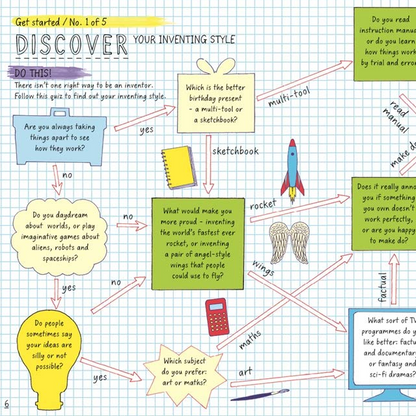 Get started / No. 1 of 5
DISCOVER YOUR INVENTING STYLE
DO THIS!
There isn't one right way to be an inventor.
Follow this quiz to find out your inventing style.
Are you always taking
things apart to see
how they work?
yes
no
Which is the better
birthday present
- a multi-tool or
a sketchbook?
multi-tool
sketchbook
Do you read
instruction manu
or do you learn
how things work
by trial and erro
read
manual
make do
Do you daydream
about worlds, or play
imaginative games about
aliens, robots and
spaceships?
no
yes
What would make you
more proud - inventing
the world's fastest ever
rocket, or inventing
a pair of angel-style
wings that people
could use to fly?
rocket
wings
Does it really anno
you if something
you own doesn't
work perfectly,
or are you happy
to make do?
factual
Do people
sometimes say
your ideas are
silly or not
possible?
no
yes
Which subject
do you prefer:
art or maths?
maths
art
What sort of TV
programmes do yo
like better: factu
and documentar
or fantasy and
sci-fi dramas?
6